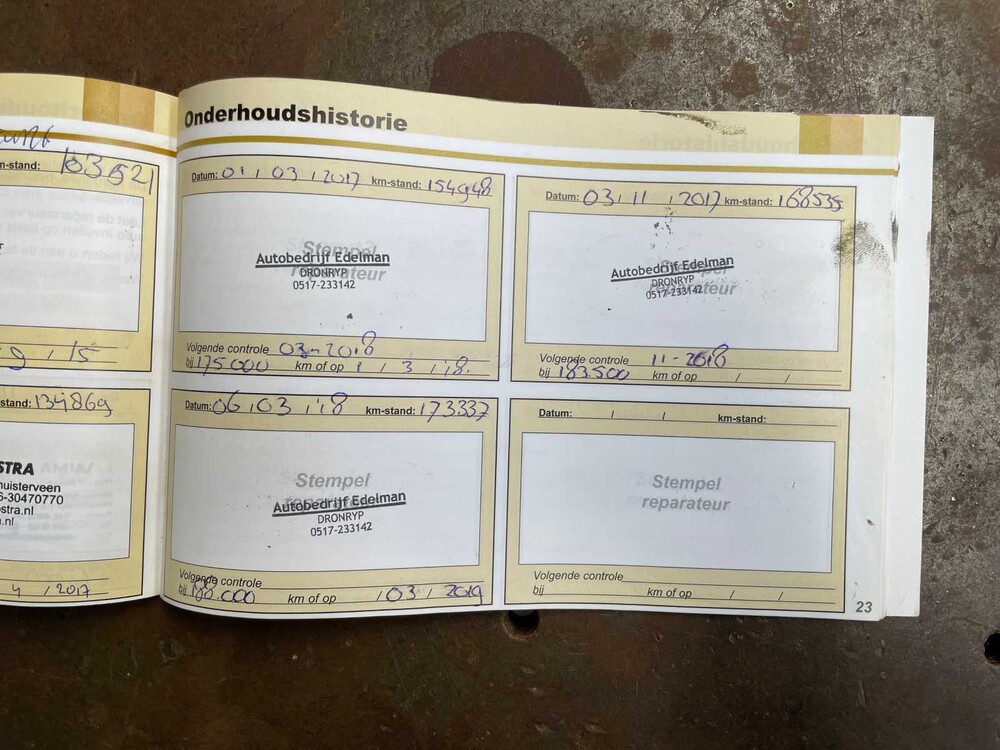 m-stand: 103.521
9 / 15
stand: 134869
STRA
nuisterveen
6-30470770
stra.nl
.nl
4 / 2017
Onderhoudshistorie
Datum: 01 / 03 / 2017 km-stand: 154948
Stempel
reparateur
Autobedrijf Edelman
DRONRYP
0517-233142
Volgende controle 03-2018
bij 175000 km of op 1 / 3 / 18.
Datum: 03 / 11 / 2017 km-stand: 168535
Stempel
reparateur
Autobedrijf Edelman
DRONRYP
0517-233142
Volgende controle 11-2018
bij 183.500 km of op / /
Datum: 06 / 03 / 18 km-stand: 173337
Stempel
reparateur
Autobedrijf Edelman
DRONRYP
0517-233142
Volgende controle
bij 188.000 km of op / 03 / 2019
Datum: / / km-stand:
Stempel
reparateur
Volgende controle
bij km of op / /
23